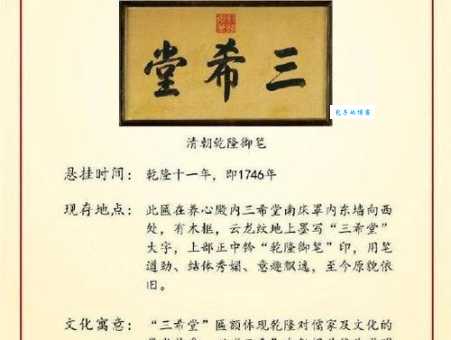 堂希三
清朝乾隆御笔
悬挂时间：乾隆十一年，即1746年
现存地点：此匾在养心殿内三希堂南床罩内东墙向西
处，有木框，云龙纹地上墨写“三希堂”
大字，上部正中钤“乾隆御笔”印，用笔
遒劲、结体秀媚、意趣飘逸，至今原貌依
旧。
文化寓意：“三希堂”匾额体现乾隆对儒家及文化的